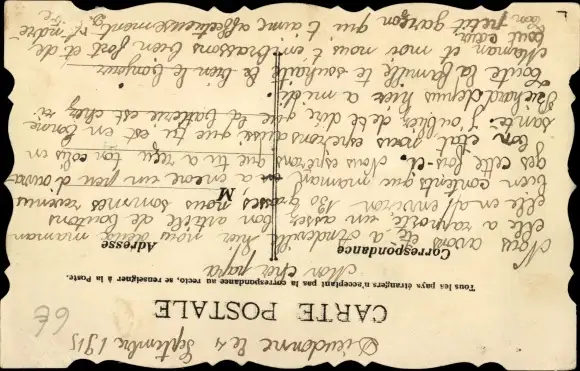 Dieudonne le 4 Septembre 1915
6€
CARTE POSTALE
Tous les pays étrangers n'acceptant pas la correspondance au recto, se renseigner à la Poste.
Mon cher papa
Correspondance
Adresse
M
Nous avons été a hier nous deux maman
elle a rapporté un assez bon article de boutons
elle en a environ 130 grosses nous sommes revenus
bien contents que maman a encore un peu d'ouvra-
ges cette fois-ci. Nous esperons que tu a reçu ton colis en
bon état, nous esperons aussi que tu est en bonne
santé. J'oubliez de te dire que la batterie est chez
Richard depuis hier a midi
Toute la famille te souhaite le bien le bonjour
Maman et moi nous t'embrassons bien fort et de
tout cœur
Ton petit garçon qui t'aime affectueusement